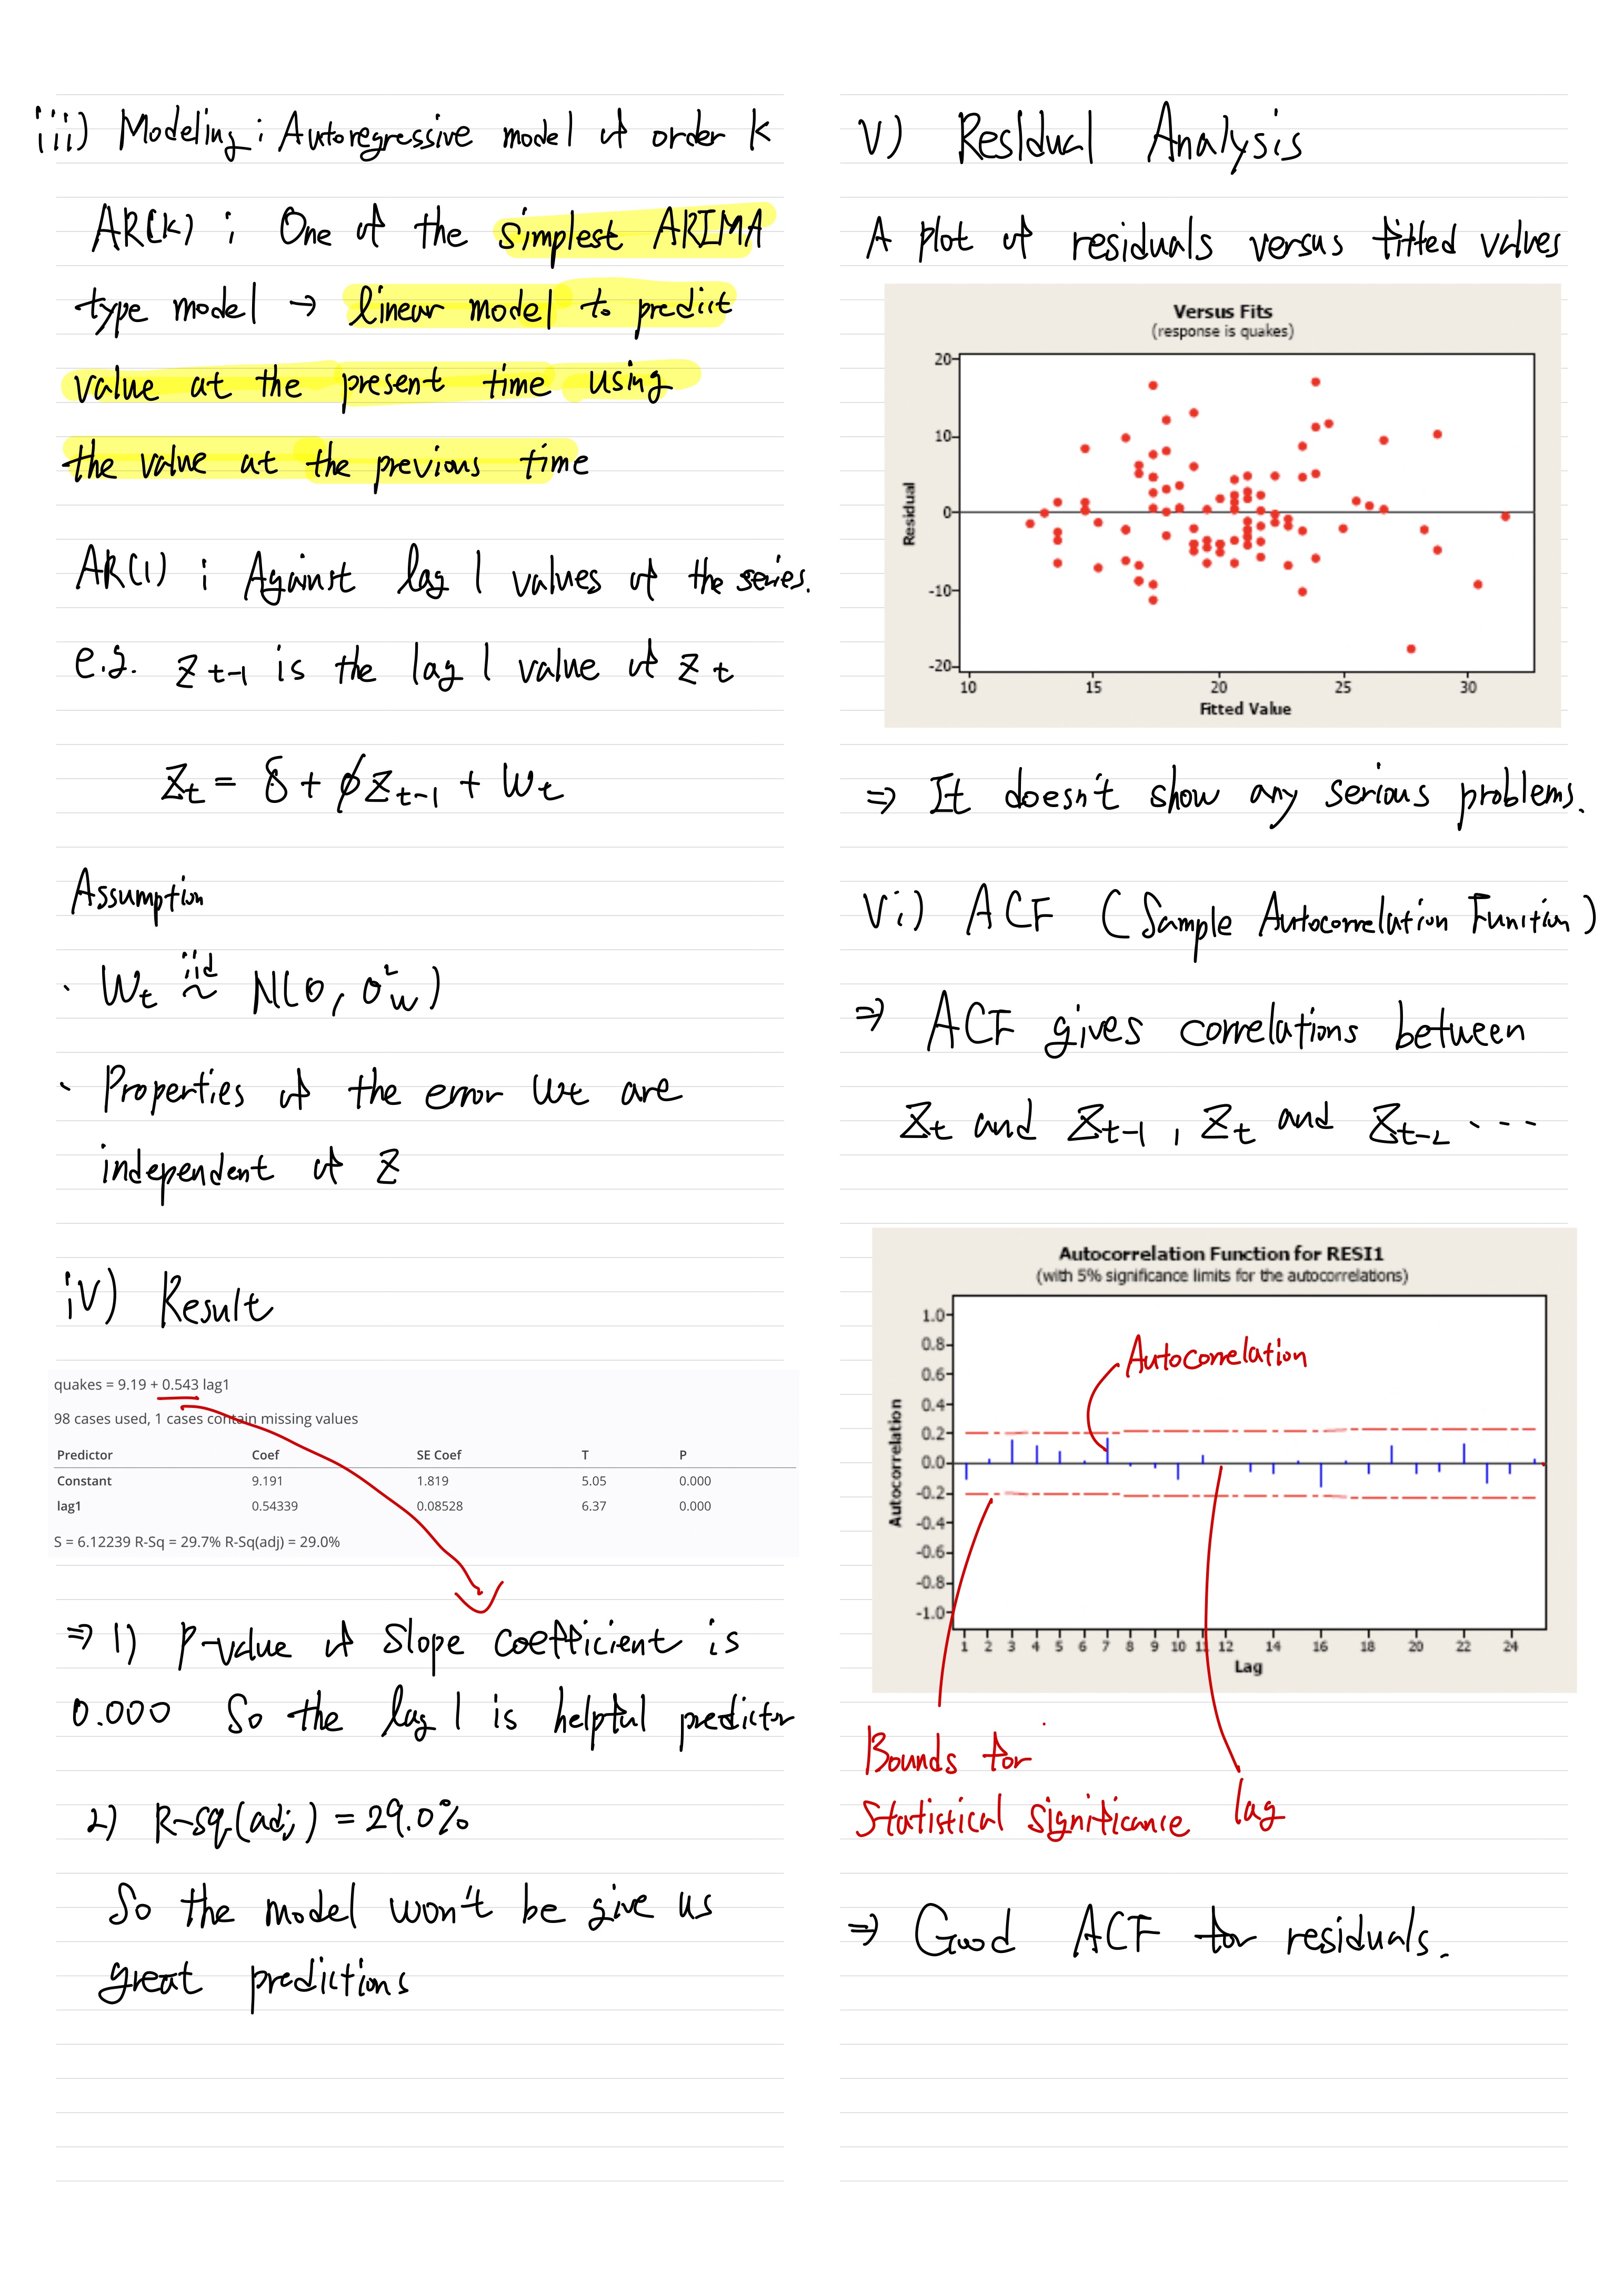 iii) Modeling : Autoregressive model of order k
AR(k) ; One of the simplest ARIMA
type model → linear model to predict
value at the present time using
the value at the previous time
AR(1) ; Against lag 1 values of the series.
e.g. Zt-1 is the lag 1 value of Zt
Zt = δ + ϕZt-1 + Wt
Assumption
· Wt iid~ N(0, σ²w)
· Properties of the error Wt are
independent of Z
iv) Result
quakes = 9.19 + 0.543 lag1
98 cases used, 1 cases contain missing values
Predictor Coef SE Coef T P
Constant 9.191 1.819 5.05 0.000
lag1 0.54339 0.08528 6.37 0.000
S = 6.12239 R-Sq = 29.7% R-Sq(adj) = 29.0%
⇒ 1) P-value of Slope coefficient is
0.000 So the lag 1 is helpful predictor
2) R-sq(adj) = 29.0%
So the model won't be give us
great predictions
V) Residual Analysis
A plot of residuals versus fitted values
Versus Fits
(response is quakes)
20
10
0
-10
-20
Residual
10 15 20 25 30
Fitted Value
⇒ It doesn't show any serious problems.
Vi) ACF (Sample Autocorrelation Funition)
⇒ ACF gives correlations between
Zt and Zt-1, Zt and Zt-2 ....
Autocorrelation Function for RESI1
(with 5% significance limits for the autocorrelations)
1.0
0.8
0.6
0.4
0.2
0.0
-0.2
-0.4
-0.6
-0.8
-1.0
Autocorrelation
Autocorrelation
1 2 3 4 5 6 7 8 9 10 11 12 14 16 18 20 22 24
Lag
Bounds for
Statistical Significance
lag
⇒ Good ACF for residuals.